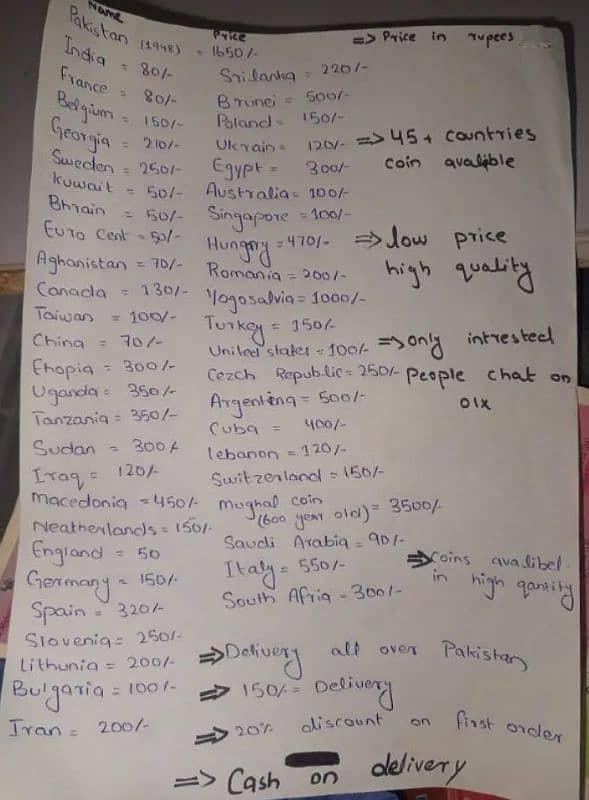 Name
Pakistan (1948) = 1650/-
India = 80/-
France = 80/-
Belgium = 150/-
Georgia = 210/-
Sweden = 250/-
Kuwait = 50/-
Bhrain = 50/-
Euro Cent = 50/-
Aghanistan = 70/-
Canada = 130/-
Taiwan = 100/-
China = 70/-
Ehopia = 300/-
Uganda = 350/-
Tanzania = 350/-
Sudan = 300/-
Iraq = 120/-
Macedonia = 450/-
Neatherlands = 150/-
England = 50
Germany = 150/-
Spain = 320/-
Slovenia = 250/-
Lithunia = 200/-
Bulgaria = 100/-
Iran = 200/-
Price
Srilanka = 220/-
Brunei = 500/-
Poland = 150/-
Ukrain = 120/-
Egypt = 300/-
Australia = 100/-
Singapore = 100/-
Hungry = 470/-
Romania = 200/-
Yogosalvia = 1000/-
Turkey = 150/-
United states = 100/-
Cezch Republic = 250/-
Argentina = 500/-
Cuba = 400/-
lebanon = 120/-
Switzerland = 150/-
Mughal coin
(600 year old) = 3500/-
Saudi Arabia = 90/-
Italy = 550/-
South Afria = 300/-
=> Price in rupees
=> 45+ countries
coin avalible
=> low price
high quality
=> only intrested
People chat on
olx
=> Coins avalibel
in high qantity
=> Delivery all over Pakistan
=> 150/= Delivery
=> 20% discount on first order
=> Cash on delivery